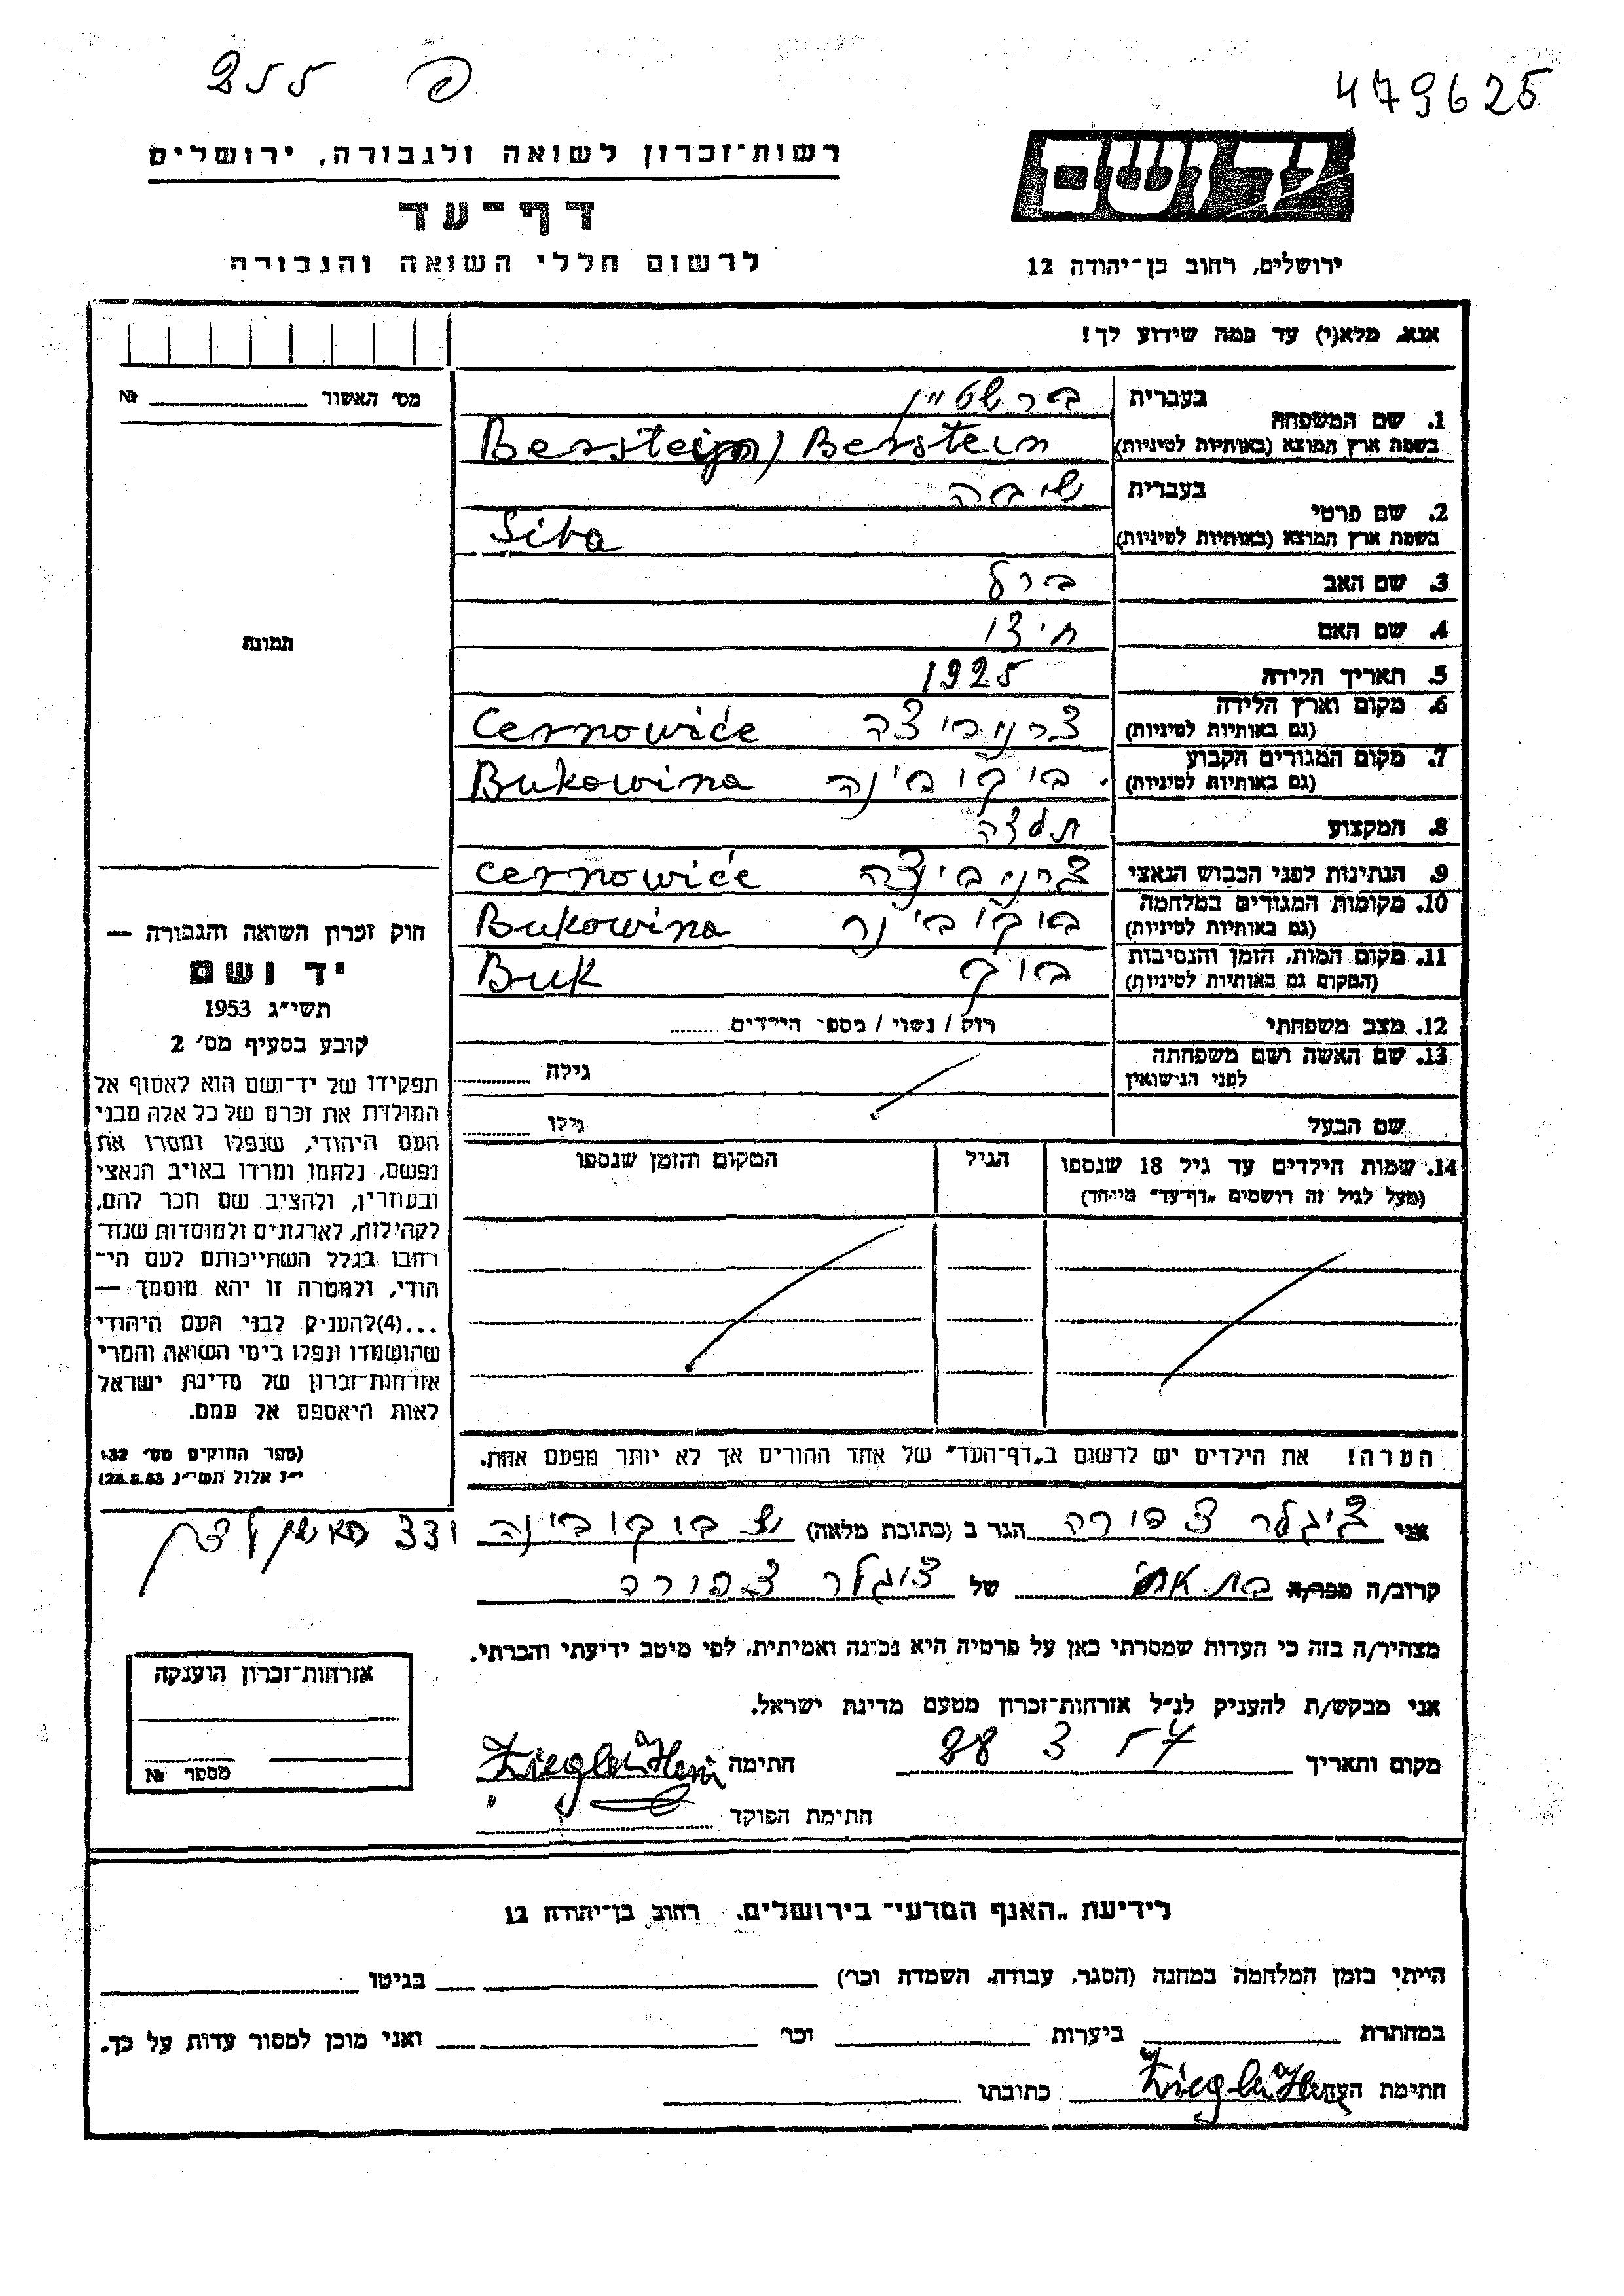 255 פ
479625
רשות־זכרון לשואה ולגבורה, ירושלים
דף־עד
לרשום חללי השואה והגבורה
יד ושם
ירושלים, רחוב בן־יהודה 12
אנא, מלא(י) עד כמה שידוע לך!
מס' האשור №
1. שם המשפחה בעברית ברשטיין
בשפת ארץ המוצא (באותיות לטיניות) Berstein
2. שם פרטי בעברית שיבה
בשפת ארץ המוצא (באותיות לטיניות) Siba
3. שם האב ברל
4. שם האם
5. תאריך הלידה 1925
6. מקום וארץ הלידה (גם באותיות לטיניות) צרנוביצה Cernowiće
7. מקום המגורים הקבוע (גם באותיות לטיניות) בוקובינה Bukowina
8. המקצוע
9. הנתינות לפני הכבוש הנאצי צרנוביצה Cernowiće
10. מקומות המגורים במלחמה (גם באותיות לטיניות) בוקובינה Bukowina
11. מקום המות, הזמן והנסיבות (המקום גם באותיות לטיניות) בוק Buk
12. מצב משפחתי רוק / נשוי / מספר הילדים
13. שם האשה ושם משפחתה לפני הנישואין גילה
שם הבעל גילו
14. שמות הילדים עד גיל 18 שנספו הגיל המקום והזמן שנספו
(מעל לגיל זה רושמים „דף־עד" מיוחד)
הערה! את הילדים יש לרשום ב„דף־העד" של אחד ההורים אך לא יותר מפעם אחת.
תמונה
חוק זכרון השואה והגבורה —
יד ושם
תשי"ג 1953
קובע בסעיף מס' 2
תפקידו של יד־ושם הוא לאסוף אל
המולדת את זכרם של כל אלה מבני
העם היהודי, שנפלו ומסרו את
נפשם, נלחמו ומרדו באויב הנאצי
ובעוזריו, ולהציב שם וזכר להם,
לקהילות, לארגונים ולמוסדות שנח־
רבו בגלל השתייכותם לעם הי־
הודי, ולמטרה זו יהא מוסמך —
...(4)להעניק לבני העם היהודי
שהושמדו ונפלו בימי השואה והמרי
אזרחות־זכרון של מדינת ישראל
לאות היאספם אל עמם.
(ספר החוקים מס' 132
י"ז אלול תשי"ג 28.8.53)
אני ציגלר צפורה הגר ב (כתובת מלאה) בוקובינה ראשון לציון
קרוב/ה מכר/ה בת אח של ציגלר צפורה
מצהיר/ה בזה כי העדות שמסרתי כאן על פרטיה היא נכונה ואמיתית, לפי מיטב ידיעתי והכרתי.
אני מבקש/ת להעניק לנ"ל אזרחות־זכרון מטעם מדינת ישראל.
מקום ותאריך 28 3 57 חתימה
חתימת הפוקד
אזרחות־זכרון הוענקה
מספר №
לידיעת „האגף המדעי" בירושלים, רחוב בן־יהודה 12
הייתי בזמן המלחמה במחנה (הסגר, עבודה, השמדה וכו') בגיטו
במחתרת ביערות וכו' ואני מוכן למסור עדות על כך.
חתימת העד כתובתו